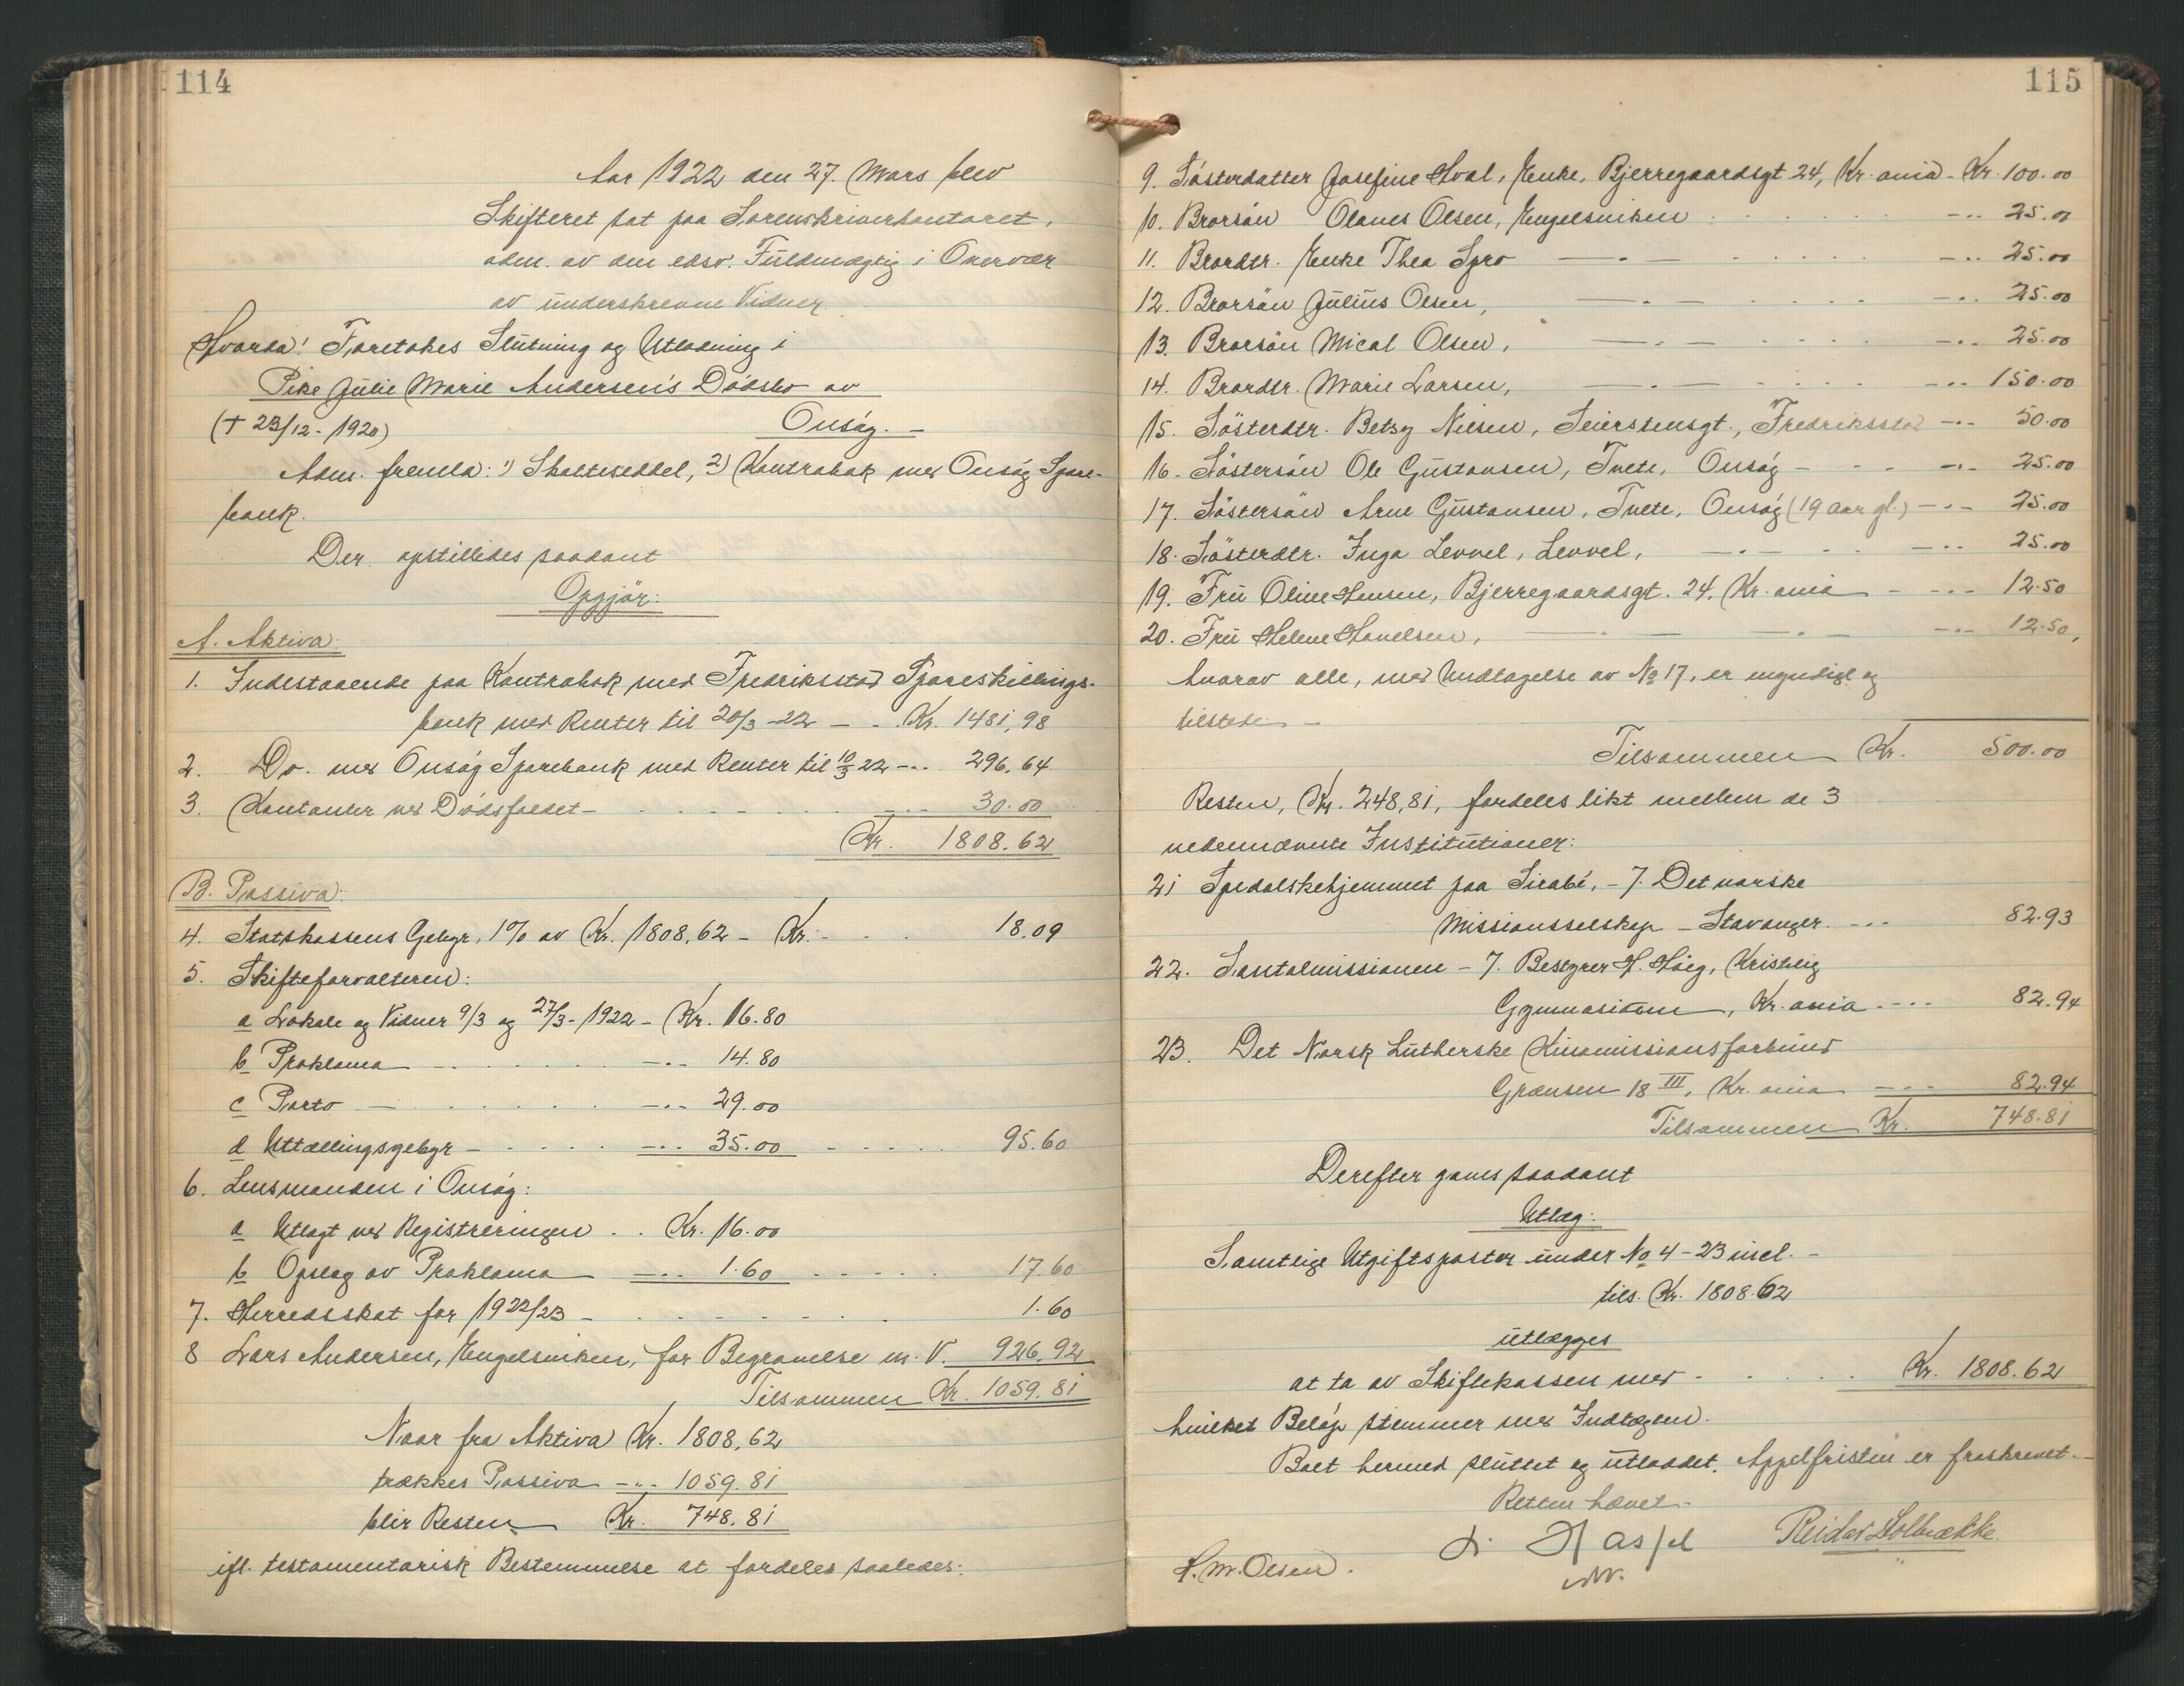 114
Aar 1922 den 27. Mars blev
Skifteret sat paa Sorenskriverkontoret,
adm. av den edsv. Fuldmægtig i Overvær
av underskrevne Vidner.
Hvorda: Foretokes Slutning og Utlodning i
Pike Julie Marie Andersen's Dødsbo av
(† 23/12 - 1920) Onsøy. –
Adm. fremla: 1) Skatteseddel, 2) Kontrabok med Onsøy Spare-
bank.
Der opstilledes saadant
Opgjør:
A. Aktiva:
1. Indestaaende paa Kontrabok med Fredriksstad Spareskillings-
bank med Renter til 20/3-22 – . Kr. 1481,98
2. Do. med Onsøy Sparebank med Renter til 10/3 22 -.. 296,64
3. Kontanter ved Dødsfaldet – 30.00
Kr. 1808.62
B. Passiva:
4. Statskassens Gebyr, 1% av Kr. 1808,62 – Kr. 18.09
5. Skifteforvalteren:
a Lokale og Vidner 9/3 og 27/3 - 1922 – Kr. 16.80
b Proklama -.. 14.80
c Porto – -.. 29.00
d Uttællingsgebyr – -.. 35.00 95.60
6. Lensmanden i Onsøy:
a Utlagt ved Registreringen . . Kr. 16.00
b Opslag av Proklama -.. 1.60 17.60
7. Herredsskat for 1922/23 – 1.60
8 Lars Andersen, Engelsviken, for Begravelse m. V. 926.92
Tilsammen Kr. 1059.81
Naar fra Aktiva Kr. 1808,62
trækkes Passiva -"- 1059.81
blir Resten Kr. 748.81
ifl. testamentarisk Bestemmelse at fordeles saaledes:
115
9. Søsterdatter Josefine Hval, Enke, Bjerregaardsgt 24, Kr.ania - Kr. 100.00
10. Brorsøn Olaves Olsen, Engelsviken -.. 25.00
11. Brordtr. Enke Thea Spro —.— -.. 25.00
12. Brorsøn Julius Olsen, —.— -.. 25.00
13. Brorsøn Mical Olsen, —.— -.. 25.00
14. Brordtr. Marie Larsen, —.— -.. 150.00
15. Søsterdtr. Betsy Nilsen, Seierstensgt., Fredriksstad -.- 50.00
16. Søstersøn Ole Gustavsen, Tvete, Onsøy – -.- 25.00
17. Søstersøn Arne Gustavsen, Tvete, Onsøy (19 aar gl.) -.- 25.00
18. Søsterdtr. Inga Levvel, Levvel, —.— -.. 25.00
19. Fru Oline Hansen, Bjerregaardsgt. 24, Kr.ania -.. 12.50
20. Fru Helene Havelsen, —.— —.— -.. 12.50,
hvorav alle, med Undtagelse av No 17, er myndige og
tilstede –
Tilsammen Kr. 500.00
Resten, Kr. 248,81, fordeles likt mellem de 3
nedennævnte Institutioner:
21 Spedalskehjemmet paa Sirabé, – 7. Det norske
Missionsselskap – Stavanger. -.. 82.93
22. Santalmissionen – 7. Bestyrer H. Høeg, Kristelig
Gymnasium, Kr.ania -.. 82.94
23. Det Norsk Lutherske Kinamissionsforbund
Grænsen 18 III, Kr.ania -.. 82.94
Tilsammen Kr. 748.81
Derefter gaves saadant
Utlæg:
Samtlige Utgiftsposter under No 4 – 23 incl. –
tils. Kr. 1808.62
utlægges
at ta av Skiftekassen med Kr. 1808.62
hvilket Beløp stemmer med Indtægten.
Boet hermed sluttet og utloddet. Appelfristen er fraskrevet. –
Retten hævet –
H. M. Olsen. Reidar Solbrække